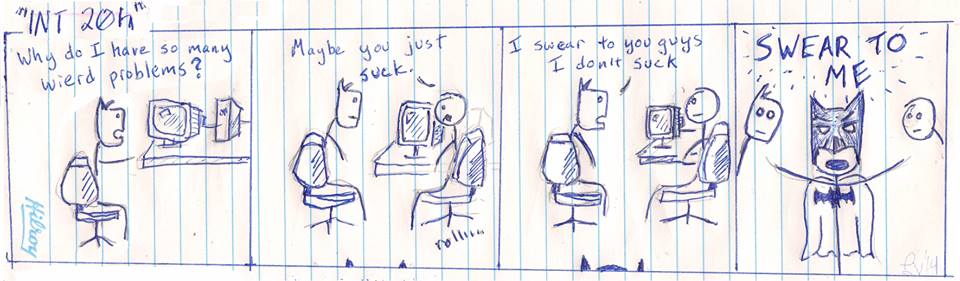 "INT 20h"
Why do I have so many
wierd problems?
Maybe you just
suck.
rolllll...
I swear to you guys
I don't suck
SWEAR TO
ME
Hilroy